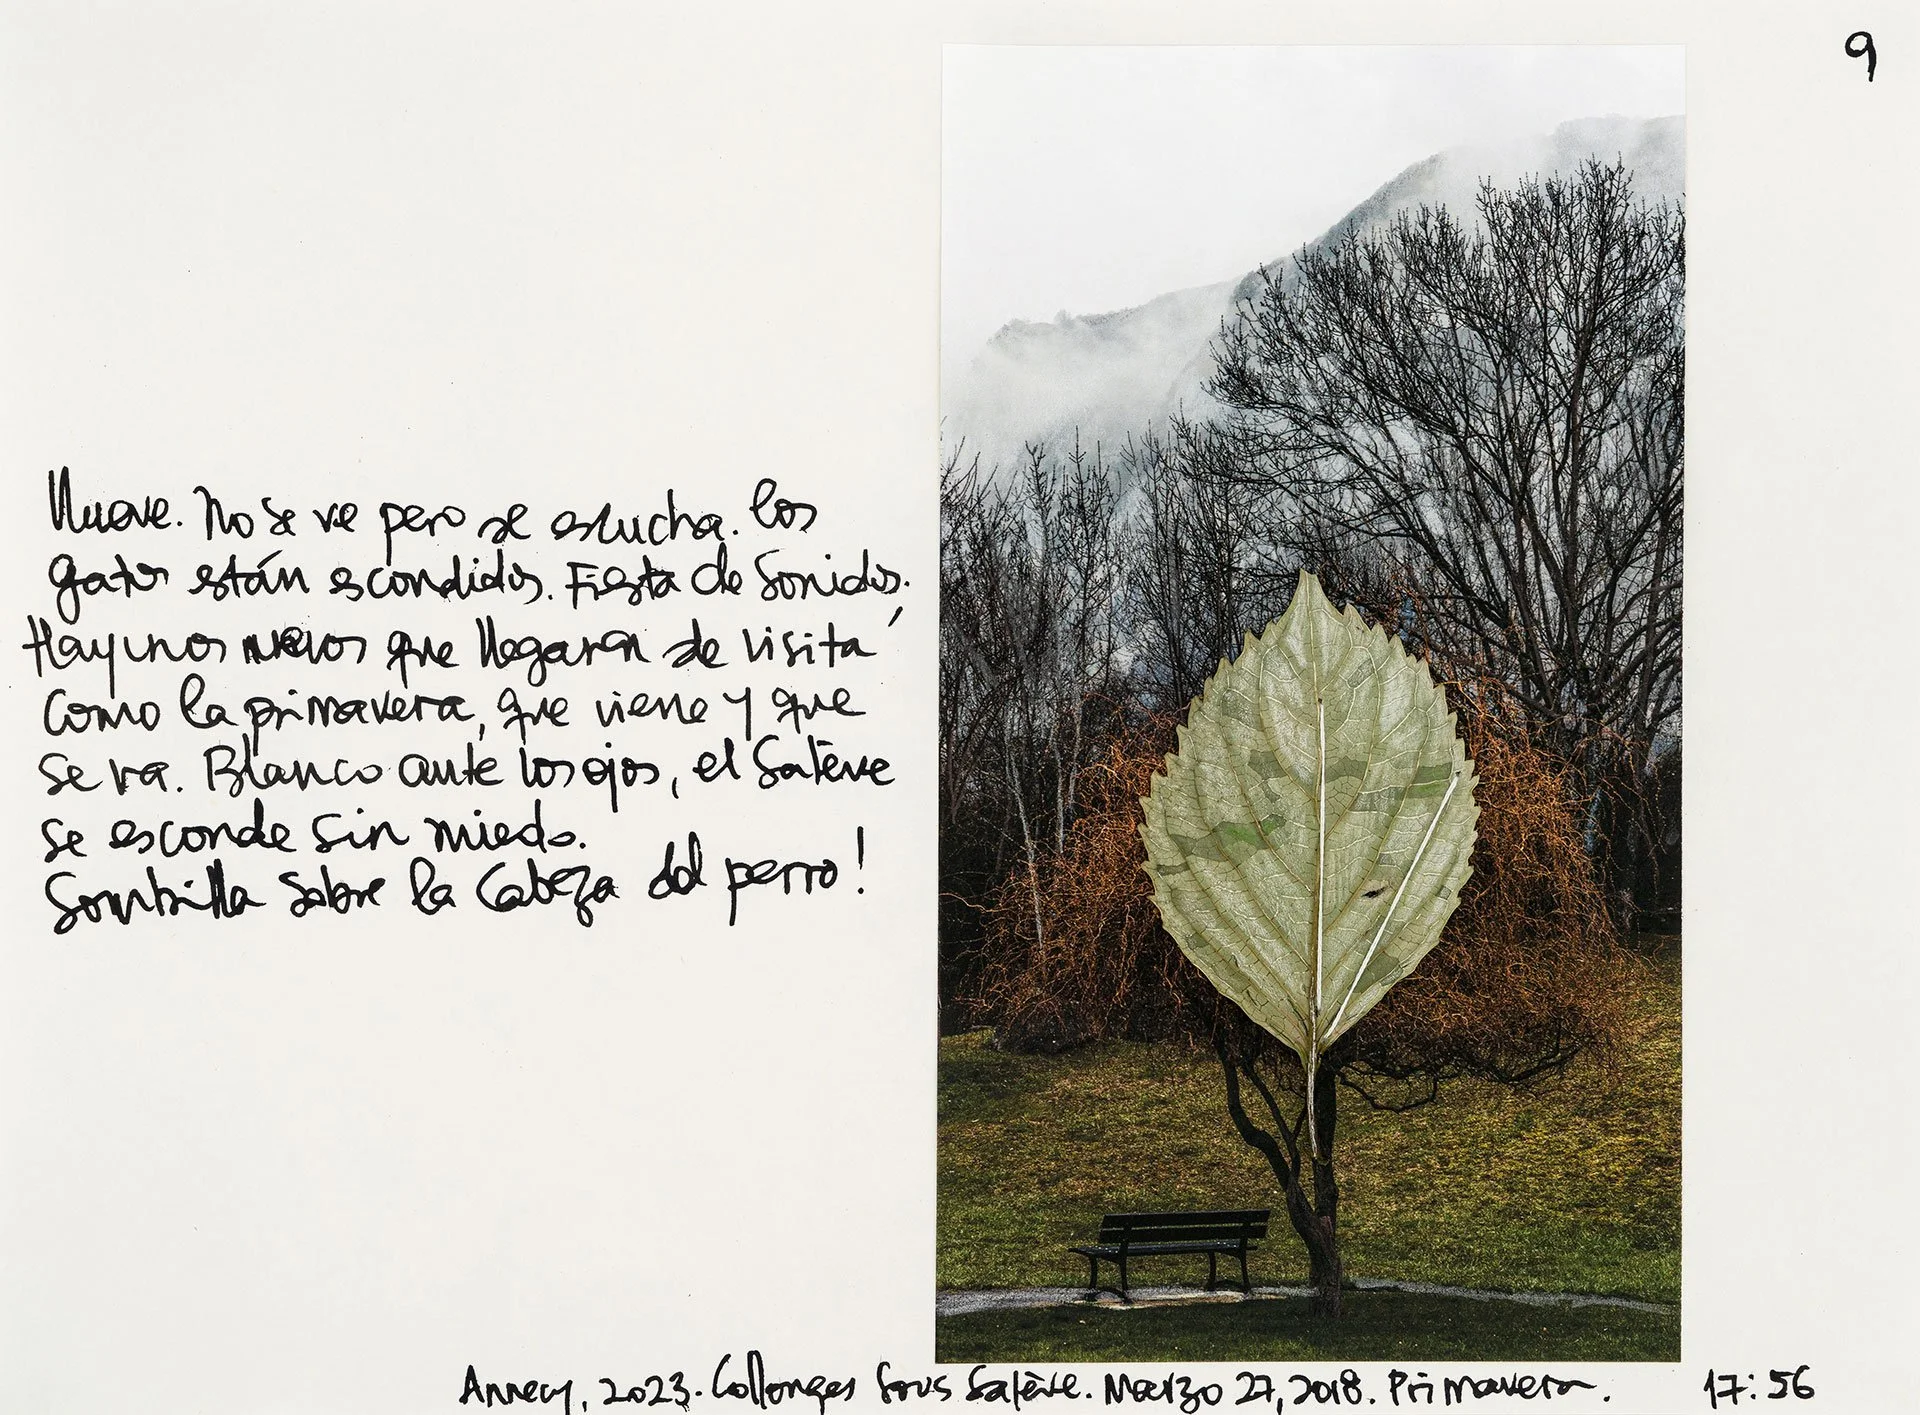 9
Nueve. No se ve pero se escucha. Los
gatos están escondidos. Fiesta de sonidos.
Hay unos nuevos que llegaran de visita,
como la primavera, que viene y que
se va. Blanco ante los ojos, el Salève
se esconde sin miedo.
Sombrilla sobre la cabeza del perro!
Annecy, 2023. Collonges Sous Salève. Marzo 27, 2018. Primavera. 17:56